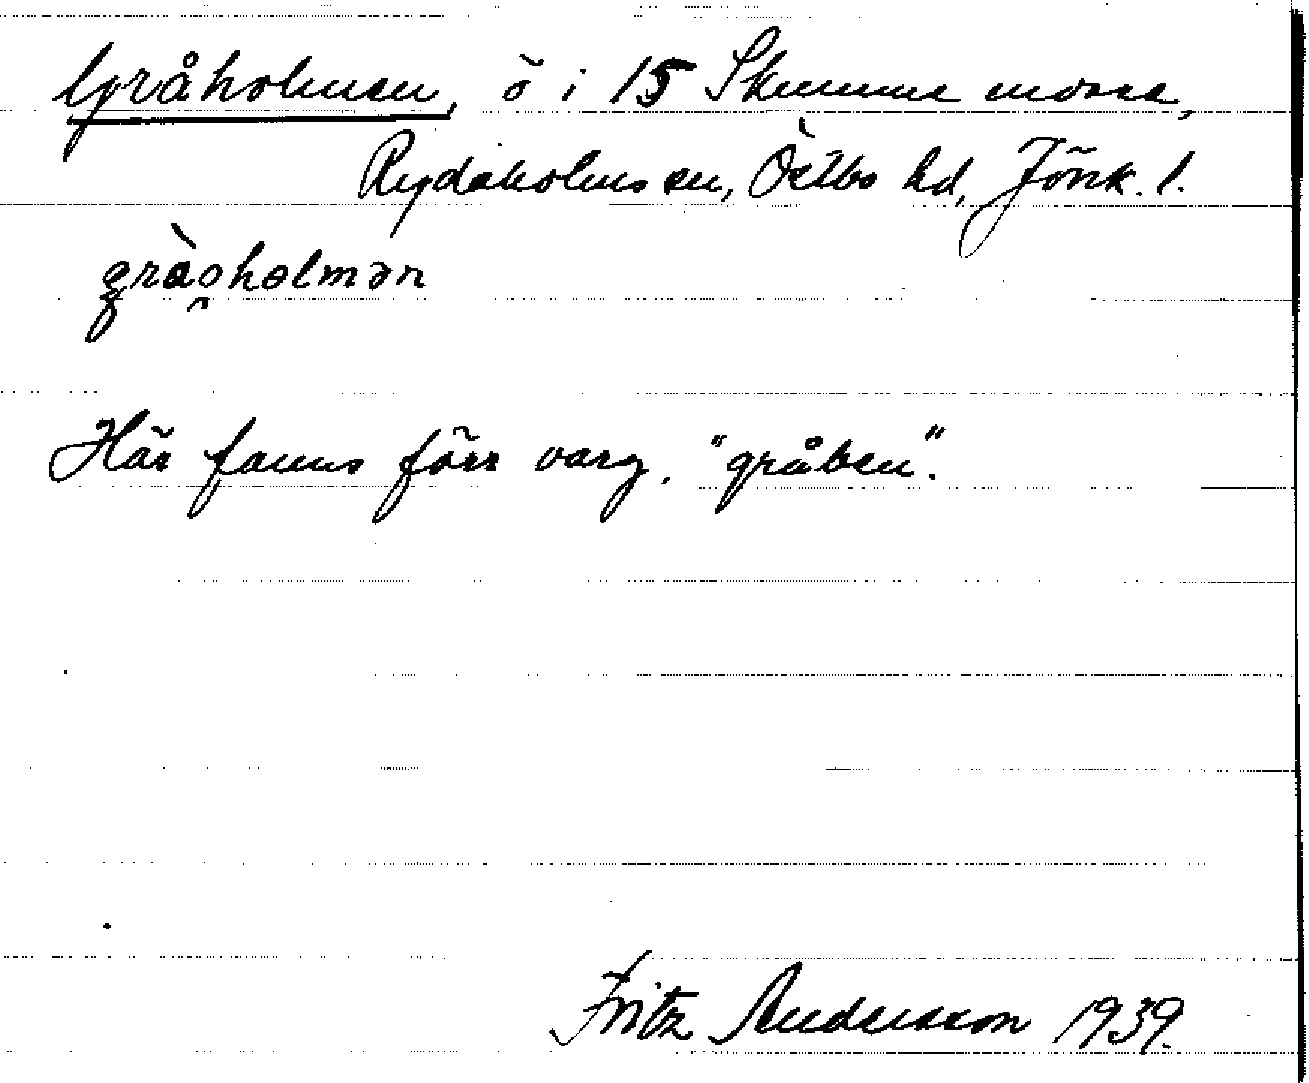 Gråholmen, ö i 15 Skumma mosse,
Rydaholms sn, Östbo hd, Jönk. l.
gràoholmən
Här fanns förr varg, "gråben".
Fritz Andersson 1939.